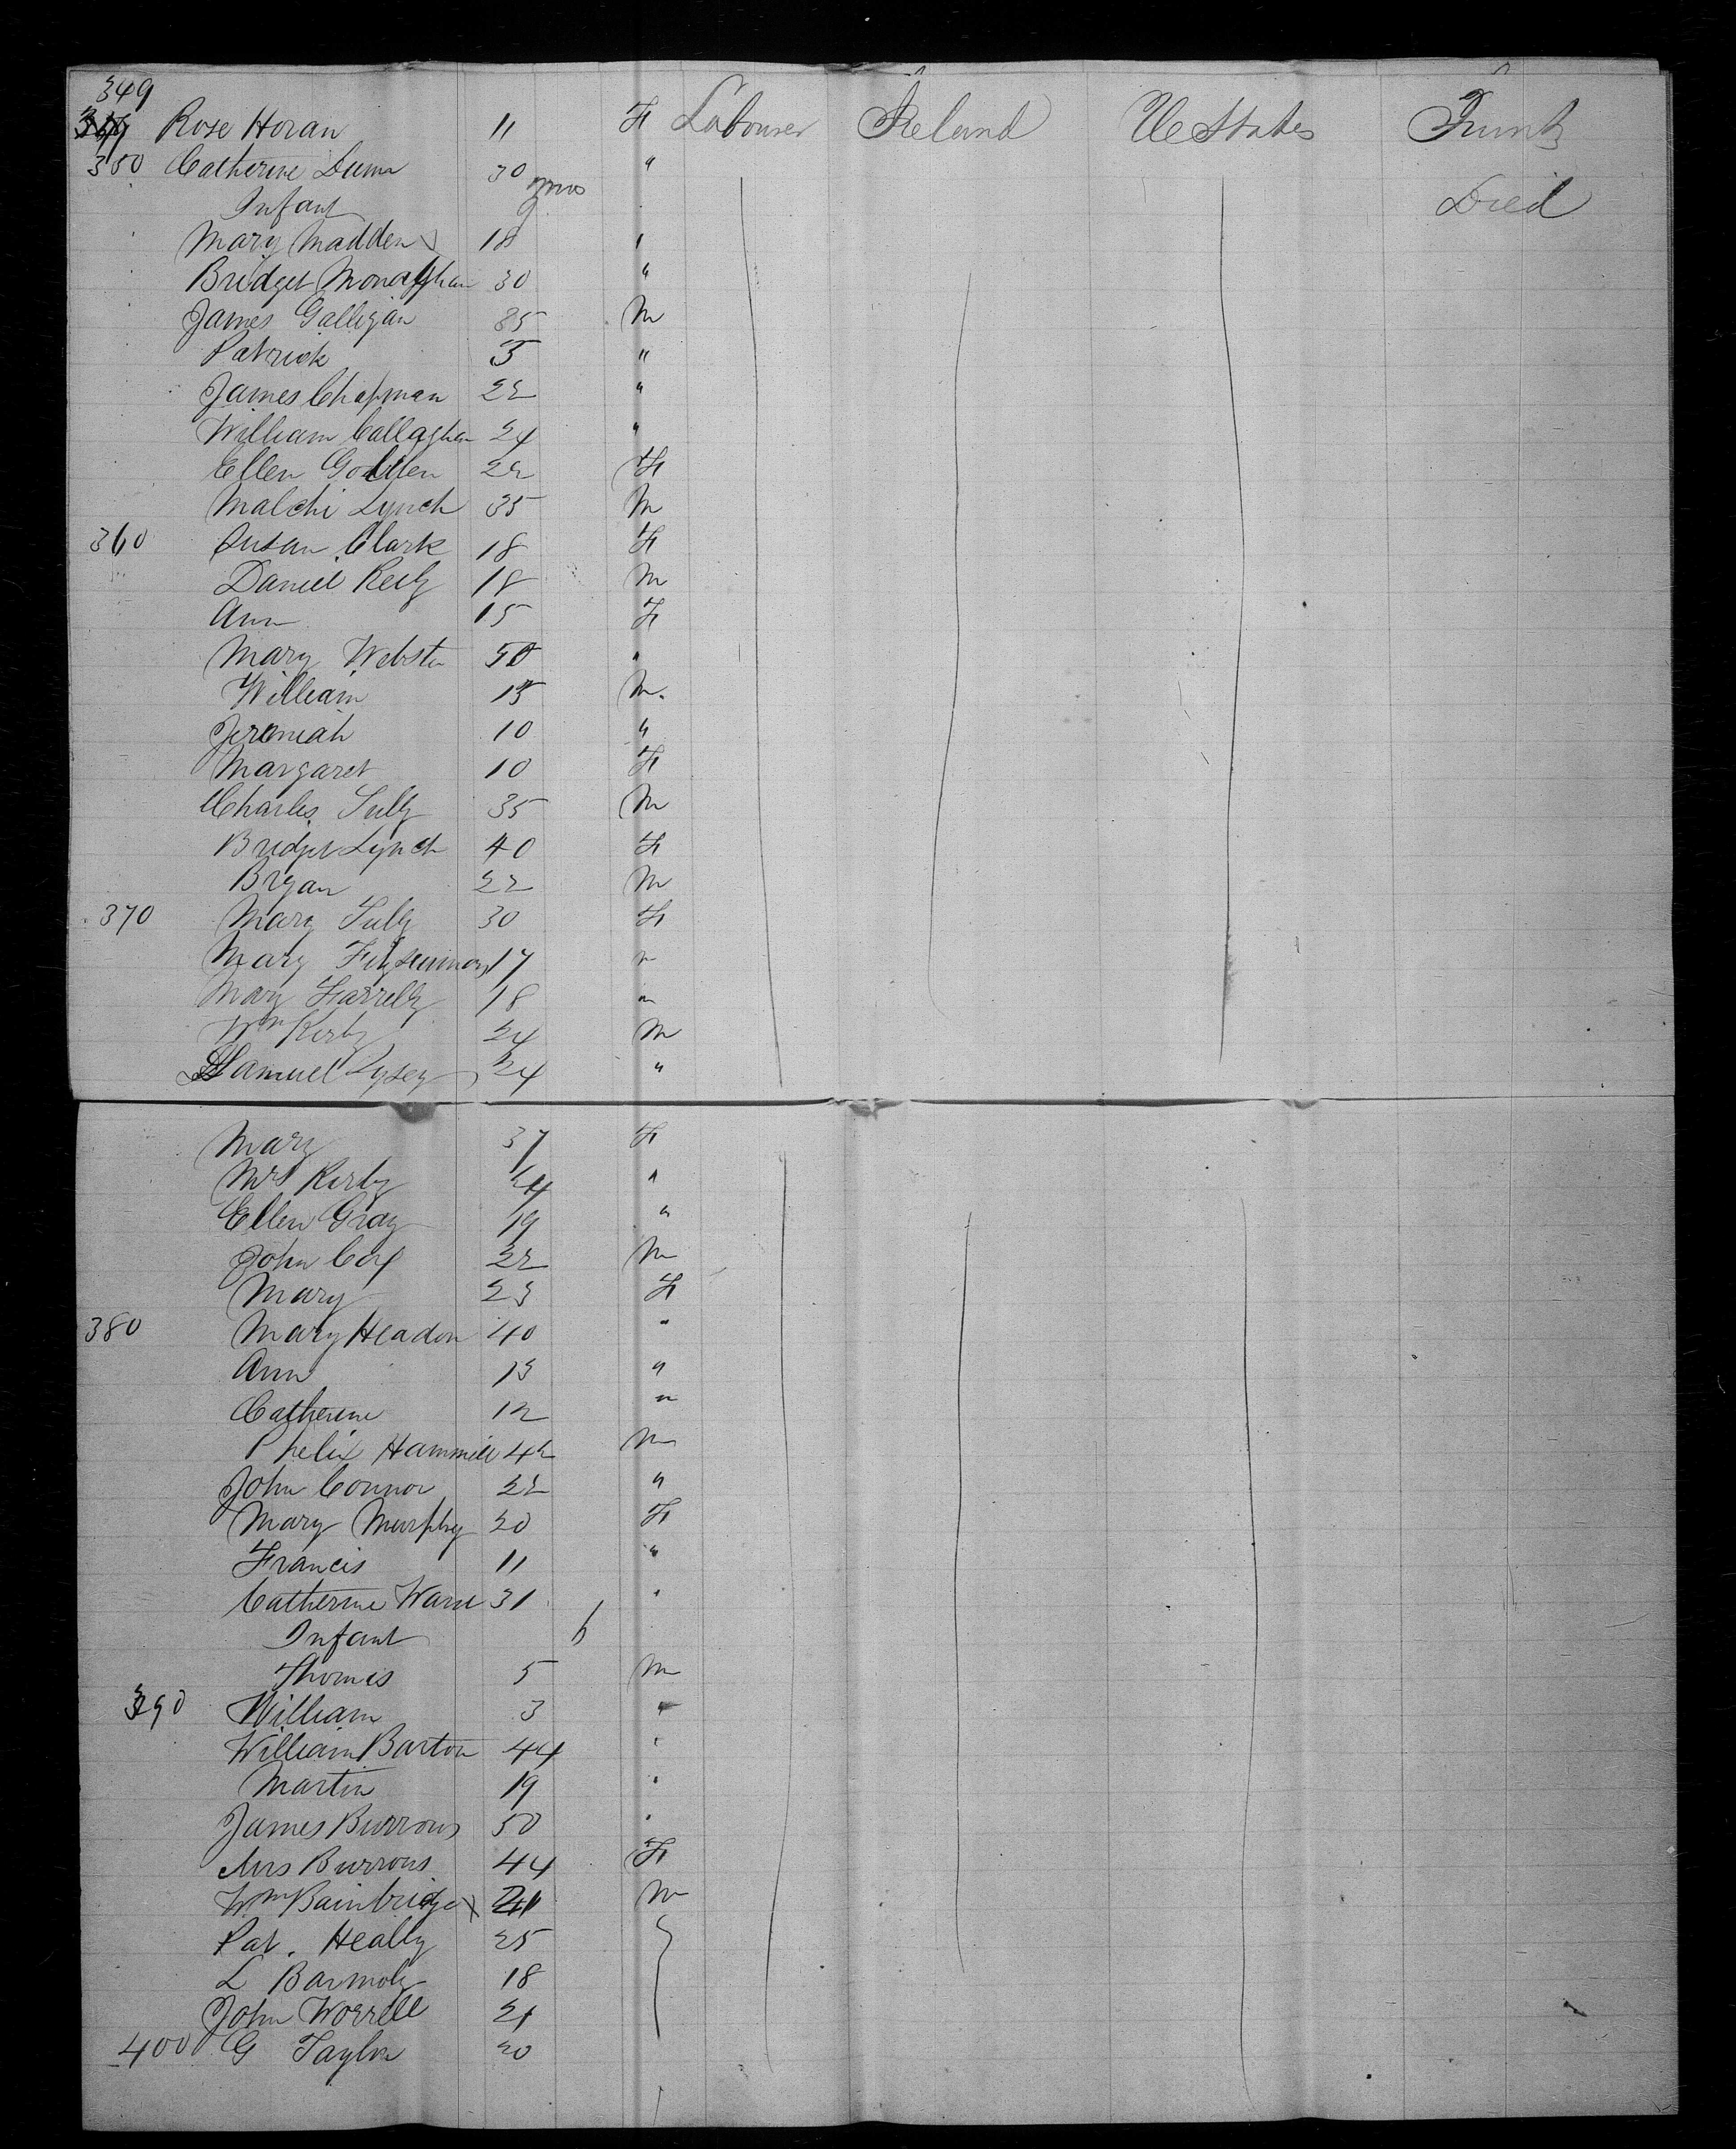 349
Rose Horan 11 F Labourer Ireland U States Trunk
350 Catherine Dunn 30 "
Infant 9 mos Died
Mary Madden 18 "
Bridget Monaghan 30 "
James Galligan 35 M
Patrick 5 "
James Chapman 22 "
William Callaghan 24 "
Ellen Golden 22 F
Malchi Lynch 35 M
360 Susan Clark 18 F
Daniel Reily 18 M
Ann 15 F
Mary Webster 50 "
William 15 M.
Jeremiah 10 "
Margaret 10 F
Charles Tully 35 M
Bridget Lynch 40 F
Bryan 22 M
370 Mary Tully 30 F
Mary Fitzsimmons 17 "
Mary Farrelly 18 "
Wm Kirby 24 M
Samuel 24 "
Mary 37 F
Mrs Kirby 24 "
Ellen Gray 19 "
John Coy 22 M
Mary 23 F
380 Mary Headon 40 "
Ann 13 "
Catherine 12 "
Phelix Hammill 42 M
John Connor 22 "
Mary Murphy 20 F
Francis 11 "
Catherine Ware 31 "
Infant
Thomas 5 M
390 William 3 "
William Barton 44 "
Martin 19 "
James Burrows 50 "
Mrs Burrows 44 F
Wm Bainbridge 21 M
Pat. Healy 25
L 18
John Worrell 21
400 G Taylor 20